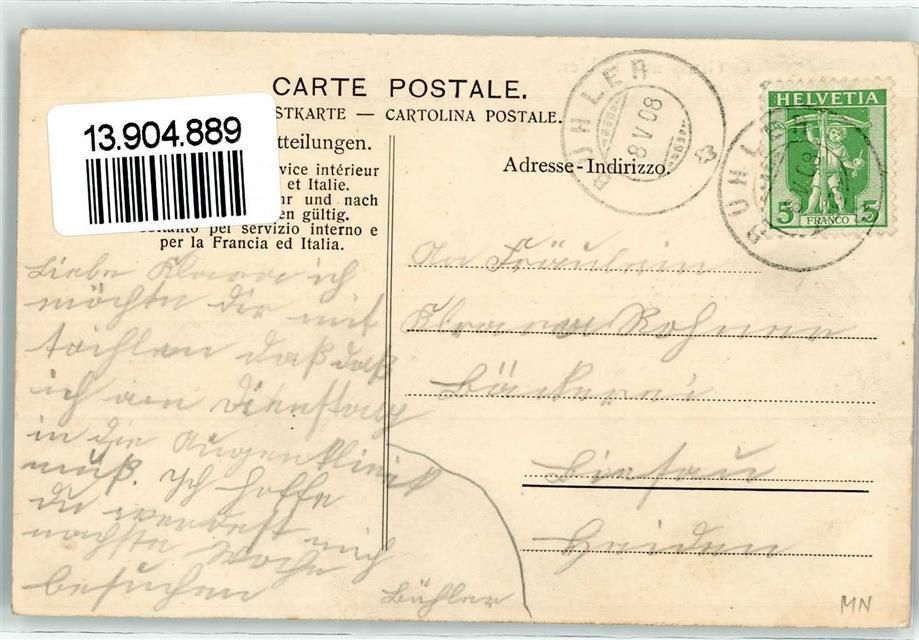 CARTE POSTALE.
STKARTE — CARTOLINA POSTALE.
13.904.889
tteilungen.
vice intérieur
et Italie.
ur und nach
en gültig.
per servizio interno e
per la Francia ed Italia.
Adresse-Indirizzo.
BÜHLER
8 V 08
HELVETIA
5 FRANCO 5
BÜHLER
V 08
Liebe Klara ich
möchte Dir mit
daß daß
ich am Dienstag
in die Augenklinik
muß. Ich hoffe
du werdest mich
nächste Woche
besuchen
Bühler
An Fräulein
Klara Rohner
Bäckerei
Heiden
MN